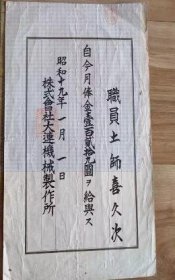 職員土師喜久次
自今月俸金壹百貳拾九圓ヲ給與ス
昭和十九年一月一日
株式會社大連機械製作所